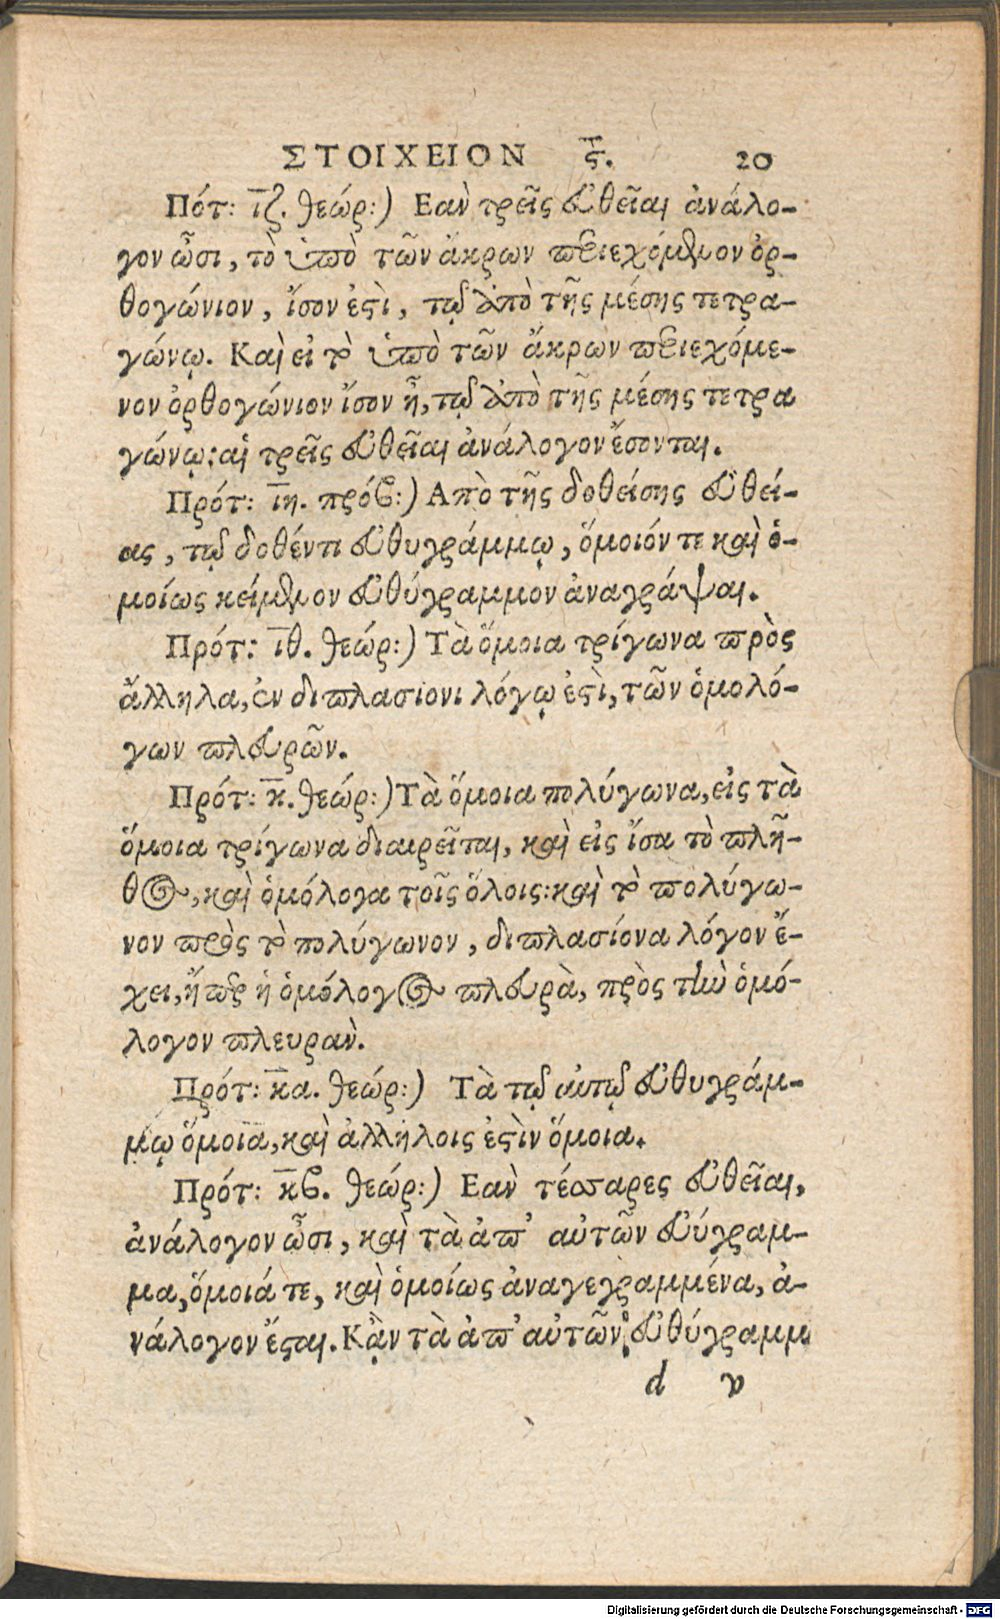 ΣΤΟΙΧΕΙΟΝ ς. 20
Πότ: ιζ. θεώρ:) Εαὶν τρεῖς εὐθεῖαι ἀνάλο-
γον ὦσι, τὸ ὑπὸ τῶν ἄκρων περιεχόμενον ὀρ-
θογώνιον, ἴσον ἐστὶ, τῷ ἀπὸ τῆς μέσης τετρα-
γώνῳ. Καὶ εἰ τὸ ὑπὸ τῶν ἄκρων περιεχόμε-
νον ὀρθογώνιον ἴσον ἦ, τῷ ἀπὸ τῆς μέσης τετρα
γώνῳ: αἱ τρεῖς εὐθεῖαι ἀνάλογον ἔσονται.
Πρότ: ιη. πρόβ:) Απὸ τῆς δοθείσης εὐθεί-
ας, τῷ δοθέντι εὐθυγράμμῳ, ὅμοιόν τε καὶ ὁ-
μοίως κείμενον εὐθύγραμμον ἀναγράψαι.
Πρότ: ιθ. θεώρ:) Τὰ ὅμοια τρίγωνα πρὸς
ἄλληλα, ἐν διπλασίονι λόγῳ ἐστὶ, τῶν ὁμολό-
γων πλευρῶν.
Πρότ: κ. θεώρ:) Τὰ ὅμοια πολύγωνα, εἰς τὰ
ὅμοια τρίγωνα διαιρεῖται, καὶ εἰς ἴσα τὸ πλῆ-
θος, καὶ ὁμόλογα τοῖς ὅλοις: καὶ τὸ πολύγω-
νον πρὸς τὸ πολύγωνον, διπλασίονα λόγον ἔ-
χει, ἤπερ ἡ ὁμόλογος πλευρὰ, πρὸς τὴν ὁμό-
λογον πλευρὰν.
Πρότ: κα. θεώρ:) Τὰ τῷ αὐτῷ εὐθυγράμ-
μῳ ὅμοια, καὶ ἀλλήλοις ἐστὶν ὅμοια.
Πρότ: κβ. θεώρ:) Εαὶν τέσσαρες εὐθεῖαι,
ἀνάλογον ὦσι, καὶ τὰ ἀπ' αὐτῶν εὐύγραμ-
μα, ὅμοιά τε, καὶ ὁμοίως ἀναγεγραμμένα, ἀ-
νάλογον ἔσται. Κᾂν τὰ ἀπ' αὐτῶν εὐθύγραμμ
d v
Digitalisierung gefördert durch die Deutsche Forschungsgemeinschaft - DFG